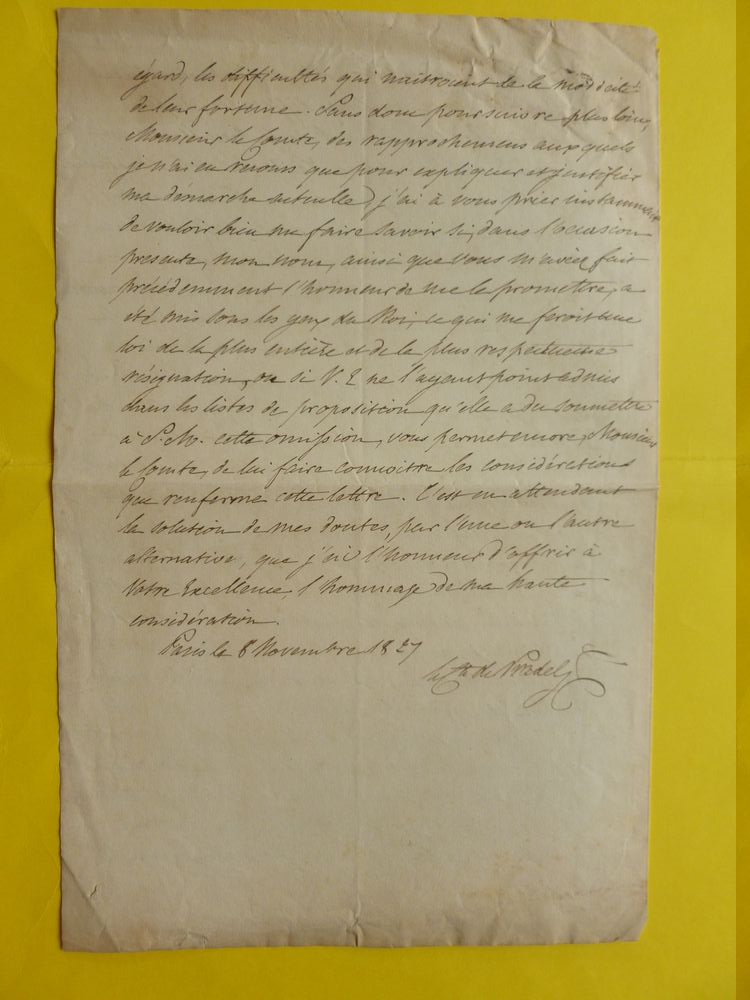 égard, les difficultés qui naitroient de la modicité
de leur fortune. Sans donc poursuivre plus loin,
Monsieur le Comte, des rapprochemens auxquels
je n'ai eu recours que pour expliquer et justifier
ma démarche actuelle, j'ai à vous prier instamment
de vouloir bien me faire savoir si, dans l'occasion
présente, mon nom, ainsi que vous m'aviez fait
précédemment l'honneur de me le promettre, a
été mis sous les yeux du Roi, ce qui me feroit une
loi de la plus entière et de la plus respectueuse
résignation, ou si V. E. ne l'ayant point admis
dans les listes de proposition qu'elle a du soumettre
à S. M. cette omission, vous permet encore, Monsieur
le Comte, de lui faire connoitre les considérations
que renferme cette lettre. C'est en attendant
la solution de mes doutes, par l'une ou l'autre
alternative, que j'ai l'honneur d'offrir à
Votre Excellence, l'hommage de ma haute
considération.
Paris le 8 Novembre 1827
le Cte de Pradel